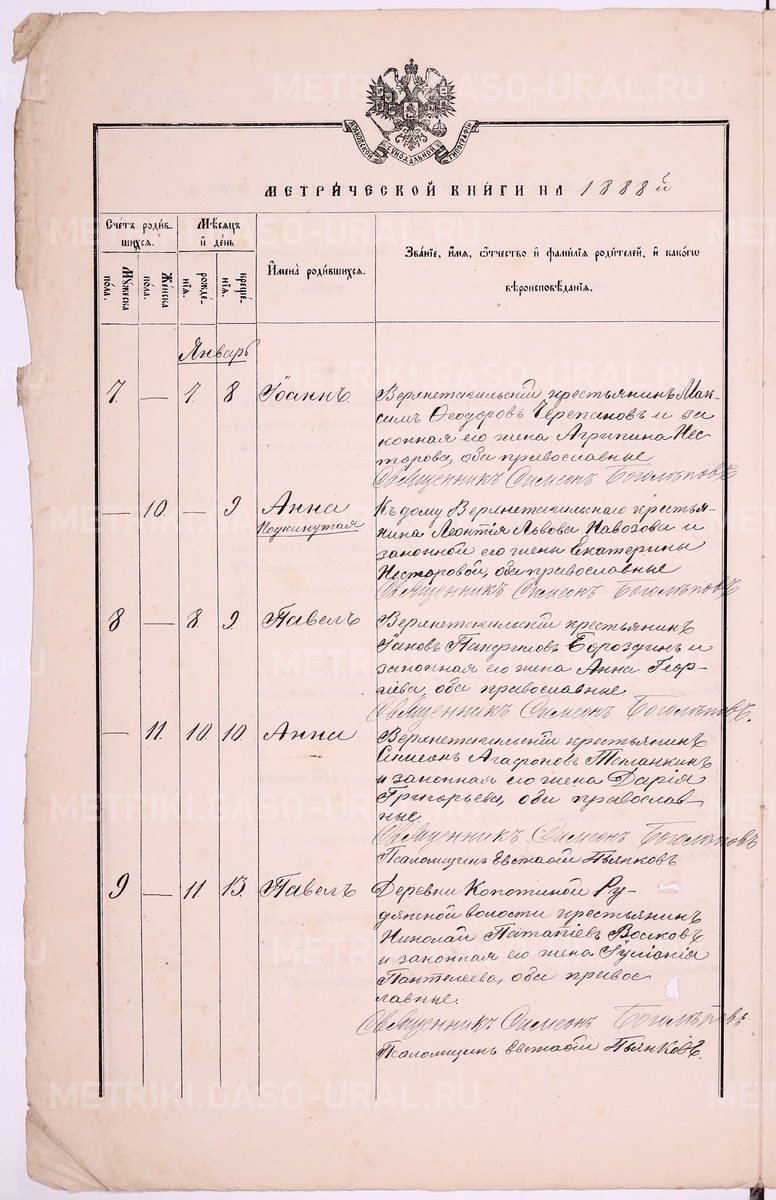 МОСКОВСКОЙ СѴНОДАЛЬНОЙ ТИПОГРАФІИ
МЕТРИ́ЧЕСКОЙ КНИ́ГИ НА 1888й
Счетъ роди́в-
шихся.
Мѣсяцъ
и҆ де́нь
Мужеска
пола.
Женска
пола.
рожде-
нїя.
креще-
нїя.
И҆мена̀ роди́вшихся.
Зва́нїе, и҆́мя, ѻ҆́тчество и҆ фамилїя роди́телей, и҆ како́гѡ
вѣроисповѣданїя.
Январь
7. — 7. 8 Іоаннъ
Верхнетагильскій крестьянинъ Мак-
симъ Ѳеодоровъ Черепановъ и за
конная его жена Агрипина Нес
торова, оба православные
Священникъ Симеонъ Боголѣповъ
— 10. — 9 Анна
Подкинутая
Къ дому Верхнетагильскаго крестья-
нина Леонтія Львова Навозова и
законной его жены Екатерины
Несторовой, оба православные
Священникъ Симеонъ Боголѣповъ
8 — 8. 9 Павелъ
Верхнетагильскій крестьянинъ
Іаковъ Панфиловъ Бороздинъ и
законная его жена Анна Геор-
гіева, оба православные
Священникъ Симеонъ Боголѣповъ.
— 11. 10 10. Анна
Верхнетагильскій крестьянинъ
Симеонъ Агафоновъ Таланкинъ
и законная его жена Дарія
Григорьева, оба православ-
ные.
Священникъ Симеонъ Боголѣповъ
Псаломщикъ Евстафій Пьянковъ
9 — 11 13. Павелъ
Деревни Копотиной Ру-
дянской волости крестьянинъ
Николай Патапіевъ Волковъ
и законная его жена Іуліанія
Пантелеева, оба право
славные.
Священникъ Симеонъ Боголѣповъ
Псаломщикъ Евстафій Пьянковъ.
METRIKI.GASO-URAL.RU